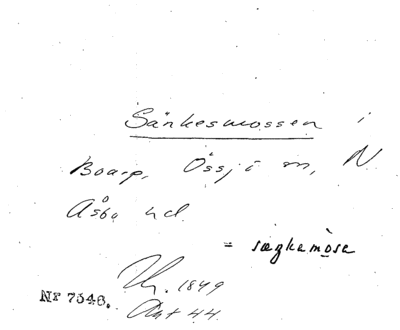 Sänkesmossen i
Boarp, Össjö sn, N
Åsbo hd.
= sæŋkamòsa
1849
Nr 7546. Akt 44.